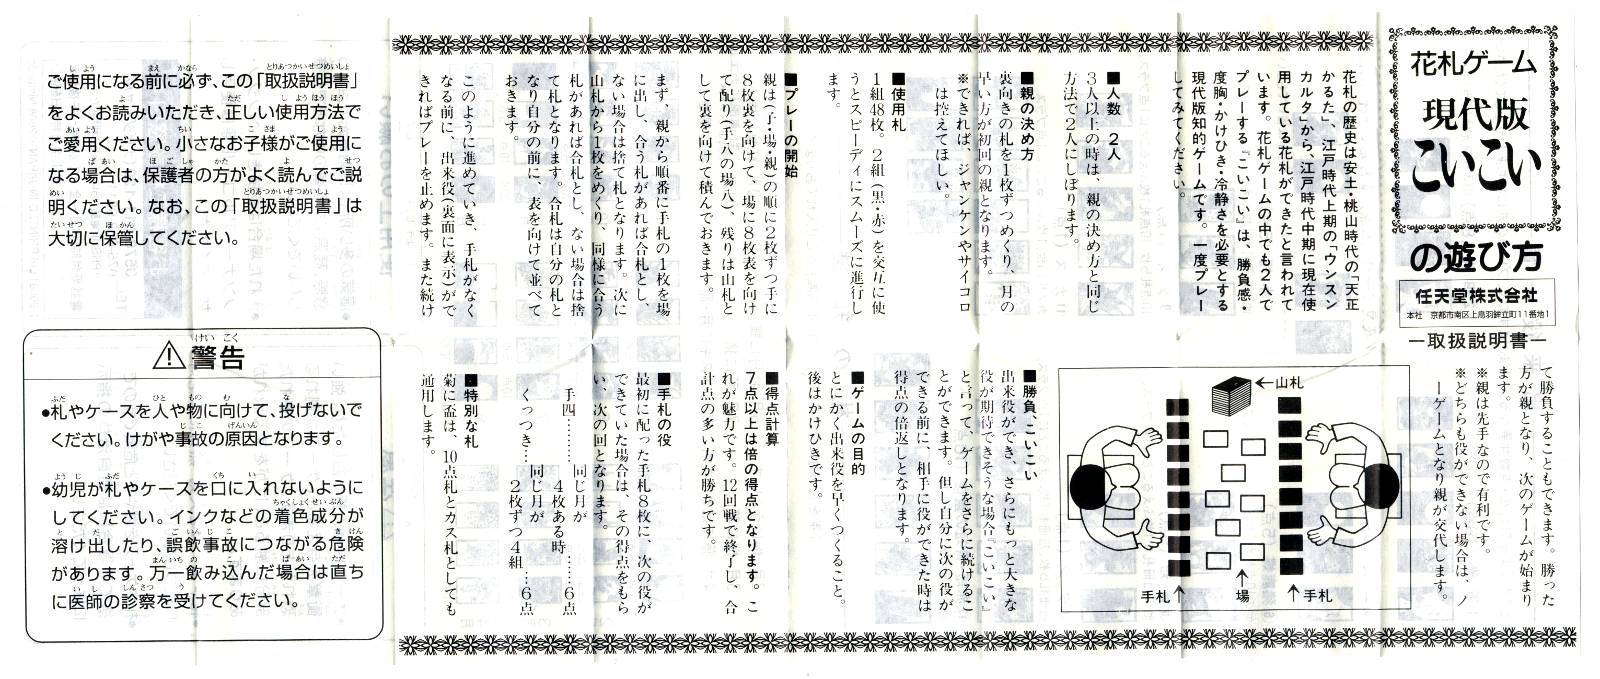 花札ゲーム
現代版
こいこい
の遊び方
任天堂株式会社
本社 京都市南区上鳥羽鉾立町11番地1
ー取扱説明書ー
花札の歴史は安土・桃山時代の「天正
かるた」、江戸時代上期の「ウンスン
カルタ」から、江戸時代中期に現在使
用している花札ができたと言われて
います。花札ゲームの中でも2人で
プレーする『こいこい』は、勝負感・
度胸・かけひき・冷静さを必要とする
現代版知的ゲームです。一度プレー
してみてください。
■人数 2人
3人以上の時は、親の決め方と同じ
方法で2人にしぼります。
■親の決め方
裏向きの札を1枚ずつめくり、月の
早い方が初回の親となります。
※できれば、ジャンケンやサイコロ
は控えてほしい。
■使用札
1組48枚。2組(黒・赤)を交互に使
うとスピーディにスムーズに進行し
ます。
■プレーの開始
親は(子・場・親)の順に2枚ずつ手に
8枚裏を向けて、場に8枚表を向け
て配り(手八の場八)、残りは山札と
して裏を向けて積んでおきます。
まず、親から順番に手札の1枚を場
に出し、合う札があれば合札とし、
ない場合は捨て札となります。次に
山札から1枚をめくり、同様に合う
札があれば合札とし、ない場合は捨
て札となります。合札は自分の札と
なり自分の前に、表を向けて並べて
おきます。
このように進めていき、手札がなく
なる前に、出来役(裏面に表示)がで
きればプレーを止めます。また続け
て勝負することもできます。勝った
方が親となり、次のゲームが始まり
ます。
※親は先手なので有利です。
※どちらも役ができない場合は、ノ
ーゲームとなり親が交代します。
山札
手札
場
手札
■勝負、こいこい
出来役ができ、さらにもっと大きな
役が期待できそうな場合『こいこい』
と言って、ゲームをさらに続けるこ
とができます。但し自分に次の役が
できる前に、相手に役ができた時は
得点の倍返しとなります。
■ゲームの目的
とにかく出来役を早くつくること。
後はかけひきです。
■得点計算
7点以上は倍の得点となります。こ
れが魅力です。12回戦で終了し、合
計点の多い方が勝ちです。
■手札の役
最初に配った手札8枚に、次の役が
できていた場合は、その得点をもら
い、次の回となります。
手四………同じ月が
4枚ある時……6点
くっつき…同じ月が
2枚ずつ4組…6点
■特別な札
菊に盃は、10点札とカス札としても
通用します。
ご使用になる前に必ず、この「取扱説明書」
をよくお読みいただき、正しい使用方法で
ご愛用ください。小さなお子様がご使用に
なる場合は、保護者の方がよく読んでご説
明ください。なお、この「取扱説明書」は
大切に保管してください。
警告
●札やケースを人や物に向けて、投げないで
ください。けがや事故の原因となります。
●幼児が札やケースを口に入れないように
してください。インクなどの着色成分が
溶け出したり、誤飲事故につながる危険
があります。万一飲み込んだ場合は直ち
に医師の診察を受けてください。